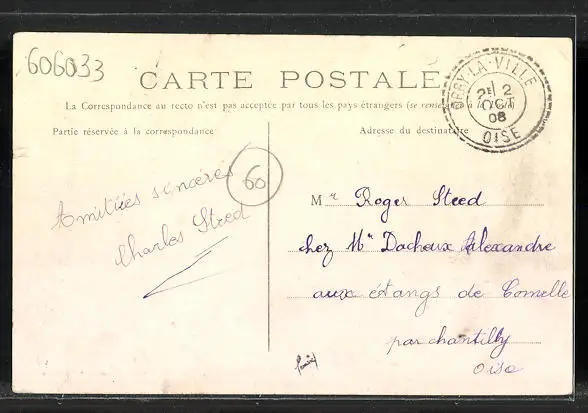 606033
CARTE POSTALE
La Correspondance au recto n'est pas acceptée par tous les pays étrangers (se renseigner à la
Partie réservée à la correspondance
Adresse du destinataire
ORRY-LA-VILLE
2E 2
OCT
08
OISE
Amitiées sincères
Charles Steed
60
Mr Roger Steed
chez Mr Dacheux Alexandre
aux étangs de Comelle
par chantilly
Oise